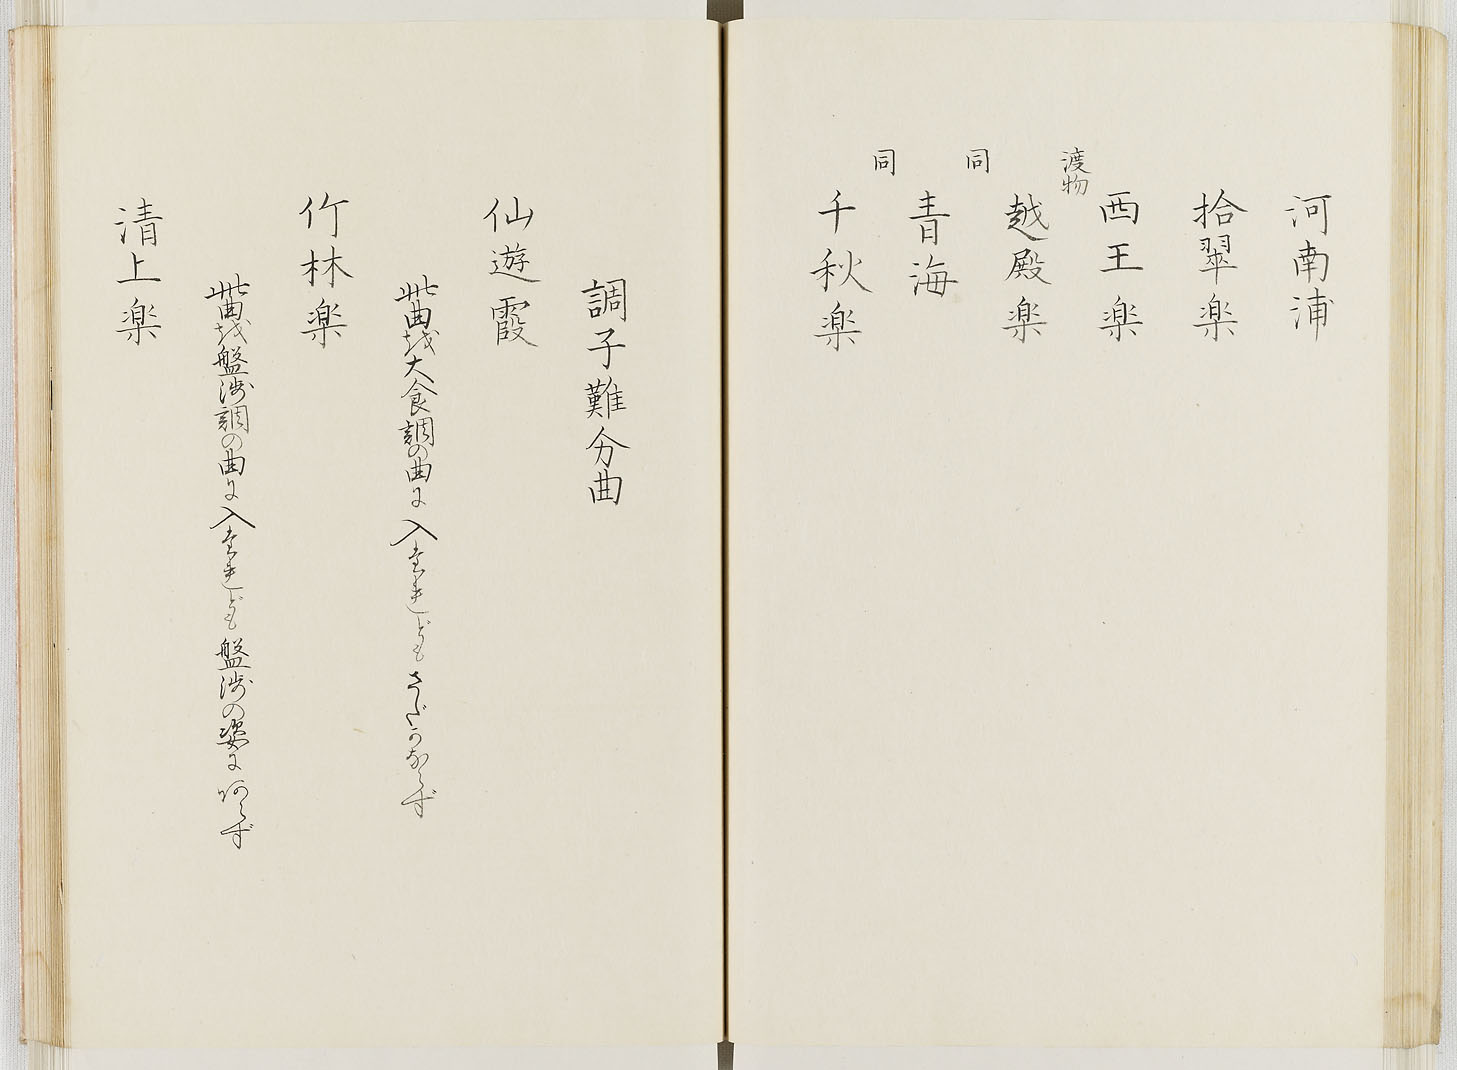 河南浦
拾翠楽
西王楽
渡物
越殿楽
同
青海
同
千秋楽
調子難分曲
仙遊霞
此曲越大食調の曲に入たれどもさだかならず
竹林楽
此曲越盤渉調の曲に入たれども盤渉の姿にあらず
清上楽